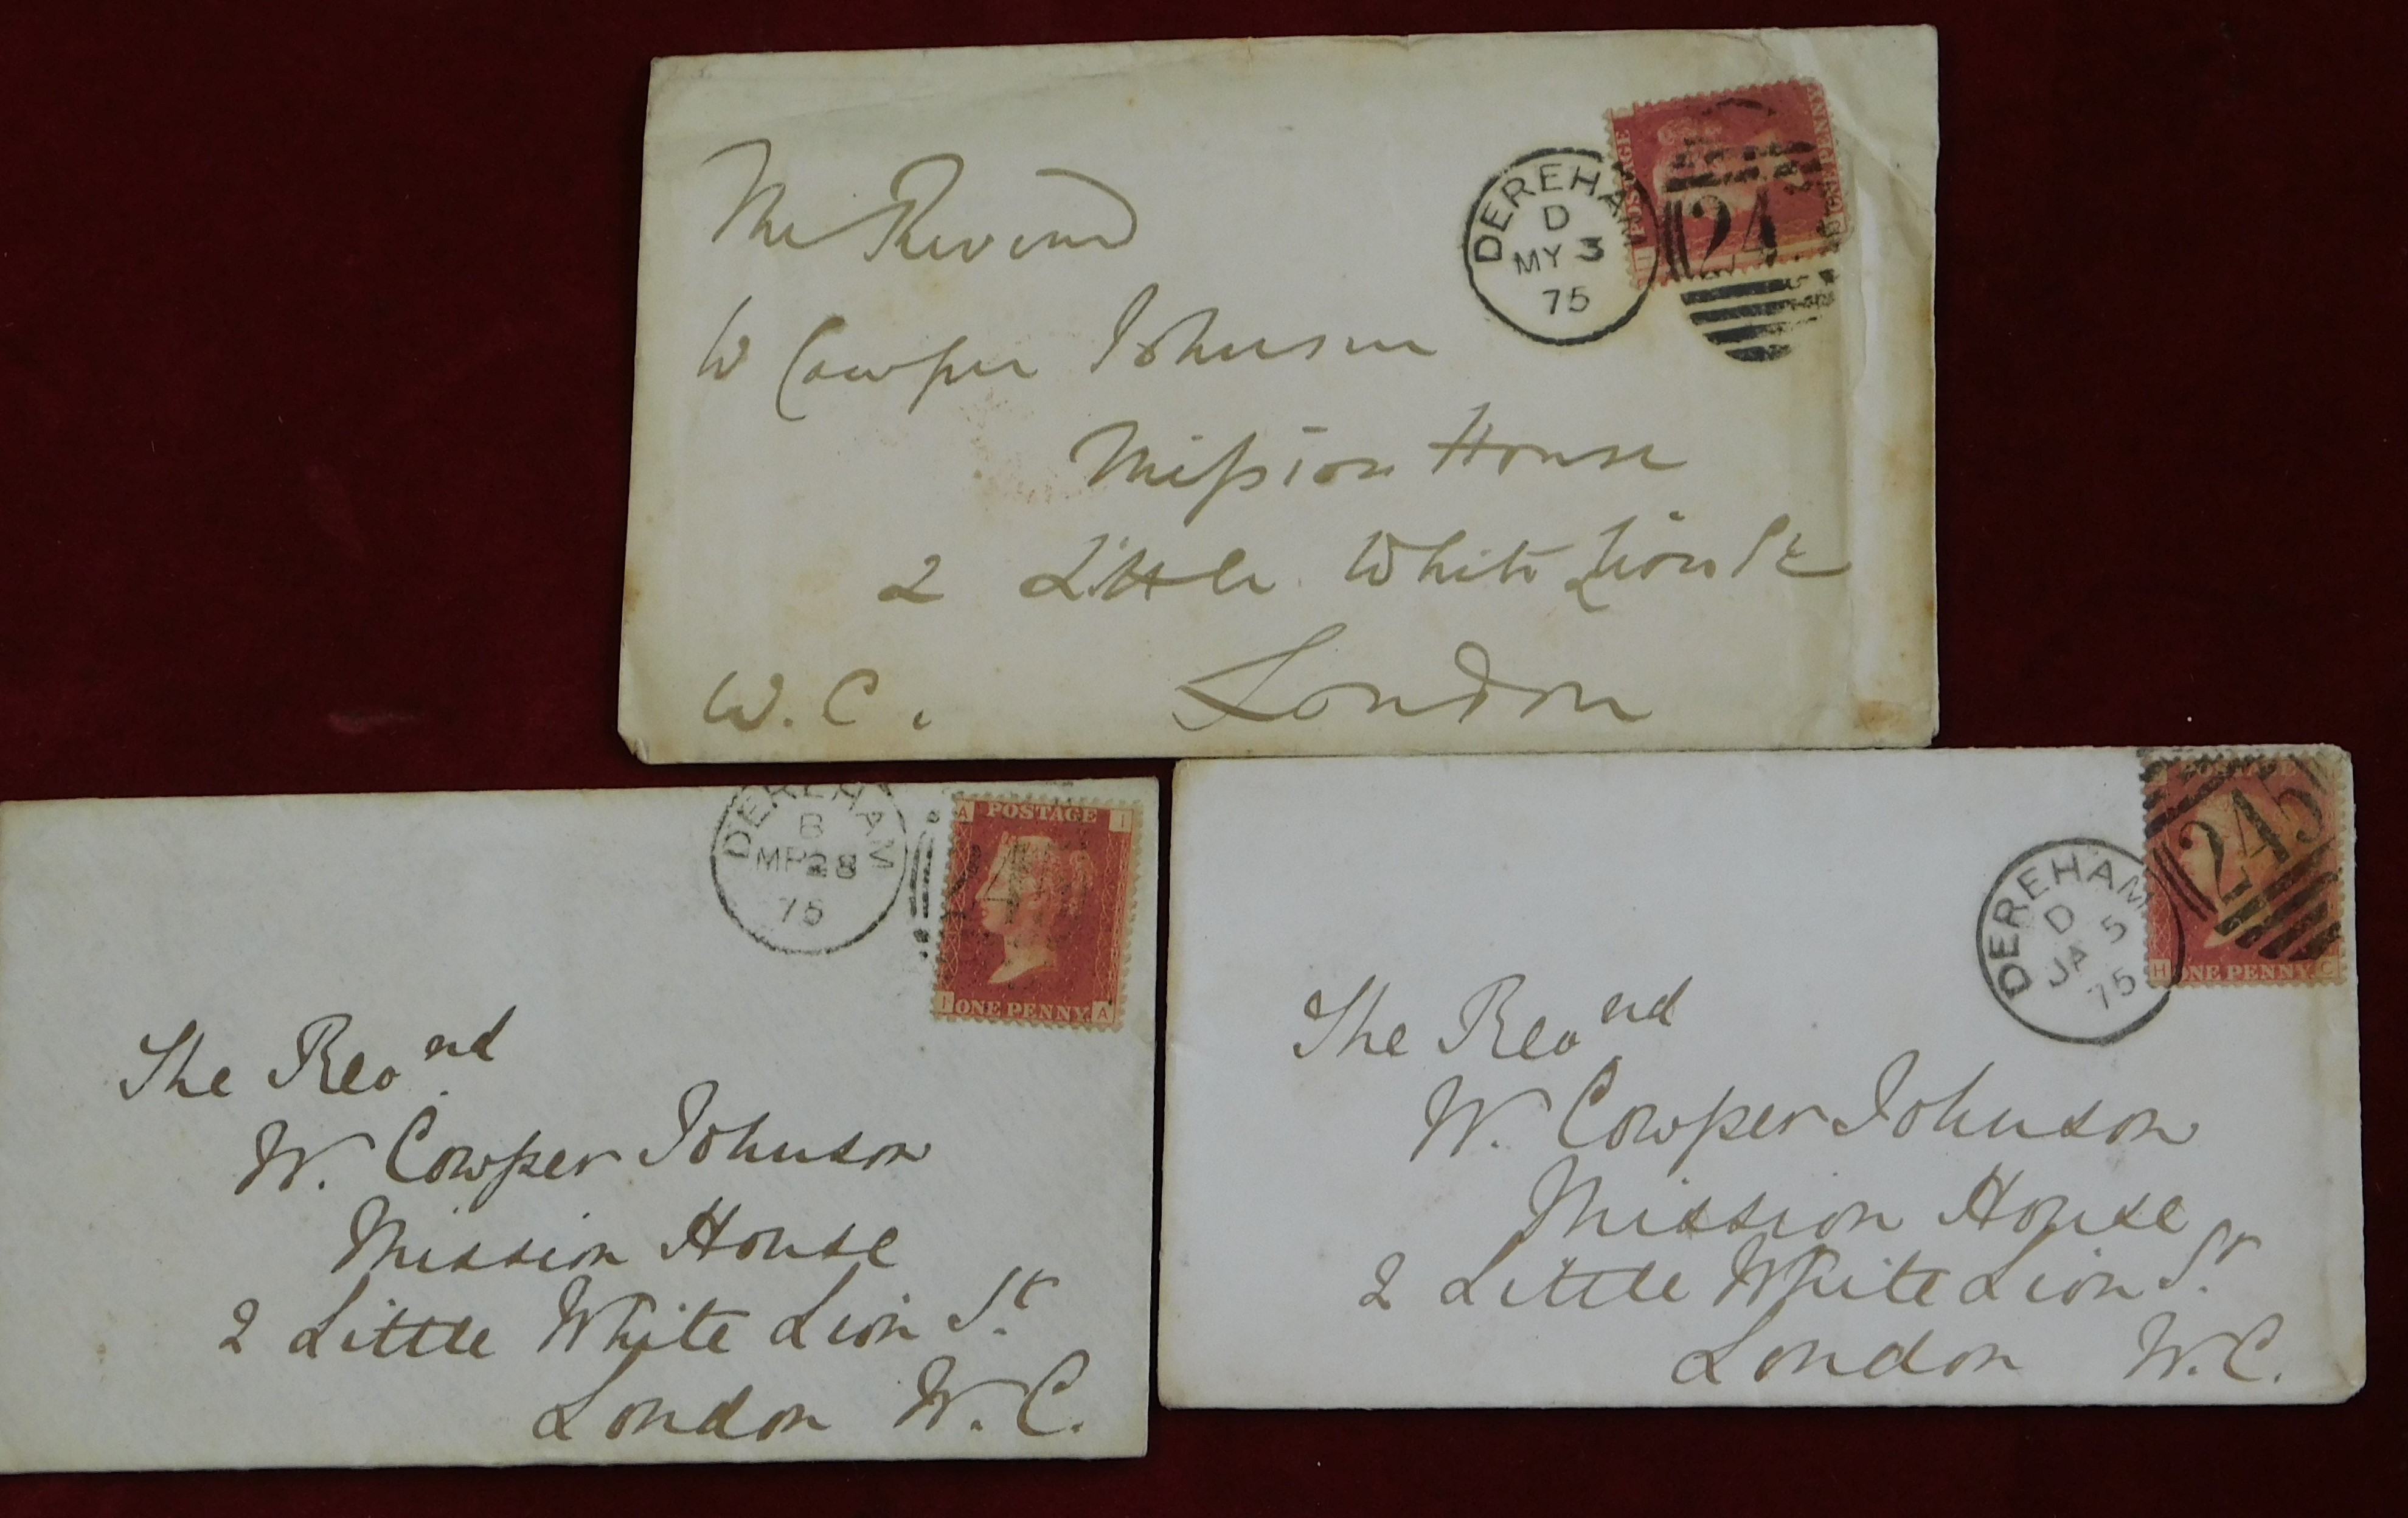 The Reverend
W Cowper Johnson
Mission House
2 Little White Lion St
W.C. London
DEREHAM
D
MY 3
75
24
POSTAGE
ONE PENNY
DEREHAM
B
MR 28
75
24
A POSTAGE I
I ONE PENNY A
The Revend
W. Cowper Johnson
Mission House
2 Little White Lion St
London W.C.
DEREHAM
D
JA 5
75
245
POSTAGE
H ONE PENNY C
The Revend
W. Cowper Johnson
Mission House
2 Little White Lion St
London W.C.